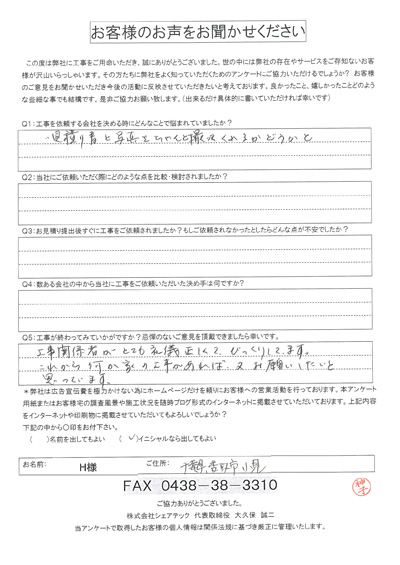 お客様のお声をお聞かせください
この度は弊社に工事をご用命いただき、誠にありがとうございました。世の中には弊社の存在やサービスをご存知ないお客
様が沢山いらっしゃいます。その方たちに弊社をよく知っていただくためのアンケートにご協力いただけるでしょうか? お客様
のご意見をお聞かせいただき今後の活動に反映させていただきたいと考えております。良かったこと、嬉しかったことどのよう
な些細な事でも結構です。是非ご協力お願い致します。(出来るだけ具体的に書いていただければ幸いです)
Q1:工事を依頼する会社を決める時にどんなことで悩まれていましたか?
見積り書と写真をちゃんと撮ってくれるかどうかと
Q2:当社にご依頼いただく際にどのような点を比較・検討されましたか?
Q3:お見積り提出後すぐに工事をご依頼されましたか?もしご依頼されなかったとしたらどんな点が不安でしたか?
Q4:数ある会社の中から当社に工事をご依頼いただいた決め手は何ですか?
Q5:工事が終わってみていかがですか?忌憚のないご意見を頂戴できましたら幸いです。
工事関係者がとても礼儀正しくて、びっくりしてます。
これから何か家の工事があれば、又お願いしたいと
思っています。
*弊社は広告宣伝費を極力かけない為にホームページだけを頼りにお客様への営業活動を行っております。本アンケート
用紙またはお客様宅の調査風景や施工状況を随時ブログ形式のインターネットに掲載させていただいております。上記内容
をインターネットや印刷物に掲載させていただいてもよろしいでしょうか?
下記の中から〇印をお付下さい。
( )名前を出してもよい (✓)イニシャルなら出してもよい
お名前: H様 ご住所: 千葉県香取市小見
FAX 0438-38-3310
ご協力ありがとうございました。
株式会社シェアテック 代表取締役 大久保 誠二
当アンケートで取得したお客様の個人情報は関係法規に基づき厳正に管理いたします。